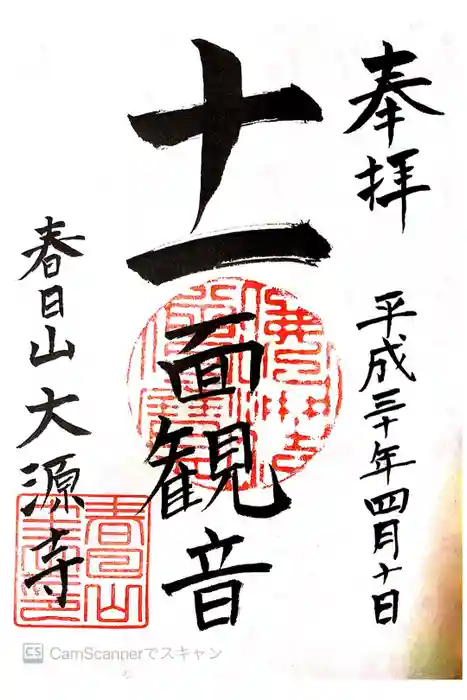 奉拝
平成三十年四月十日
十一面観音
春日山大源寺
CS CamScannerでスキャン